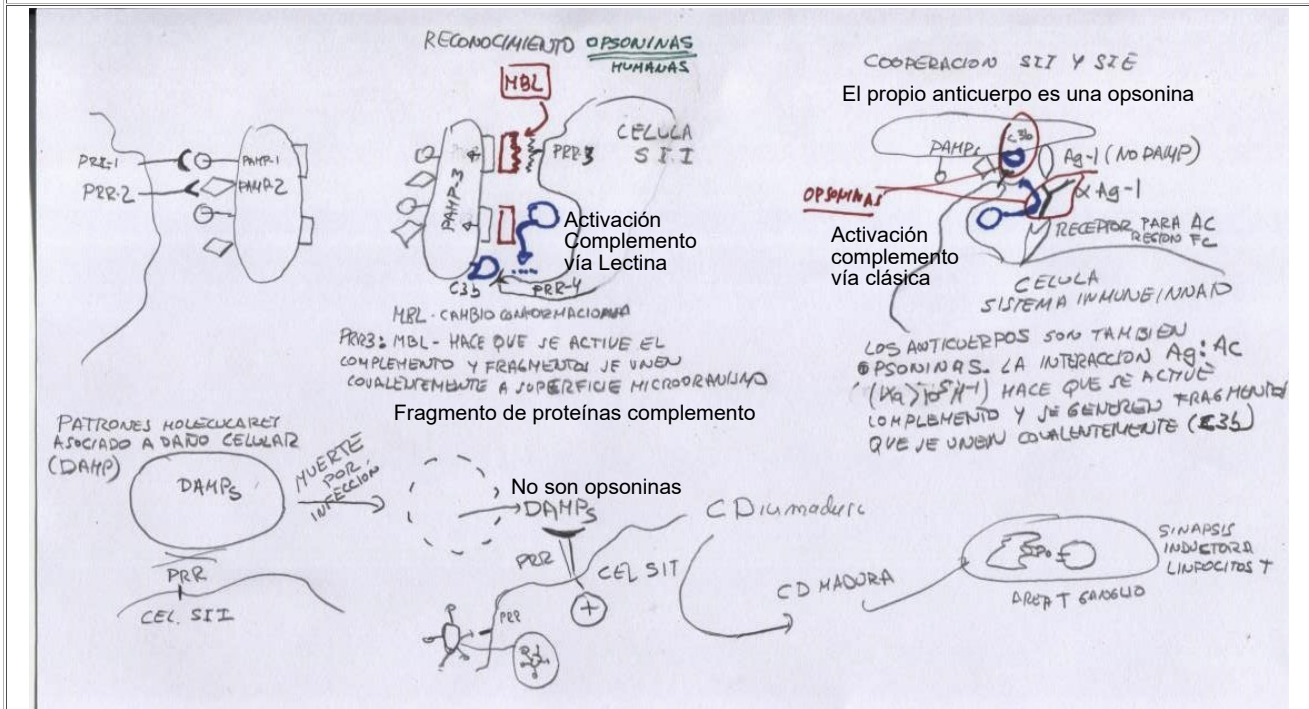 RECONOCIMIENTO OPSONINAS
HUMANAS
MBL
CELULA
S I.I
PRR-1
PRR-2
PAMP-1
PAMP2
PAMP-3
PRR-3
Activación
Complemento
vía Lectina
C3b
PRR-4
MBL - CAMBIO CONFORMACIONAL
PRR3: MBL - HACE QUE SE ACTIVE EL
COMPLEMENTO Y FRAGMENTOS SE UNEN
COVALENTEMENTE A SUPERFICIE MICROORGANISMO
Fragmento de proteínas complemento
COOPERACION SII Y SIE
El propio anticuerpo es una opsonina
C3b
PAMPs
Ag-1 (NO PAMP)
α Ag-1
OPSONINAS
Activación
complemento
vía clásica
RECEPTOR PARA AC
REGION FC
CELULA
SISTEMA INMUNE INNATO
LOS ANTICUERPOS SON TAMBIEN
OPSONINAS. LA INTERACCION Ag:AC
HACE QUE SE ACTIVE
COMPLEMENTO Y SE GENEREN FRAGMENTOS
QUE SE UNEN COVALENTEMENTE (C3b)
PATRONES MOLECULARES
ASOCIADO A DAÑO CELULAR
(DAMP)
DAMPs
PRR
CEL. SII
MUERTE
POR
INFECCION
No son opsoninas
DAMPs
PRR
CEL SII
+
P
PRR
CD inmadura
CD MADURA
SINAPSIS
INDUCTORA
LINFOCITOS T
AREA T GANGLIO